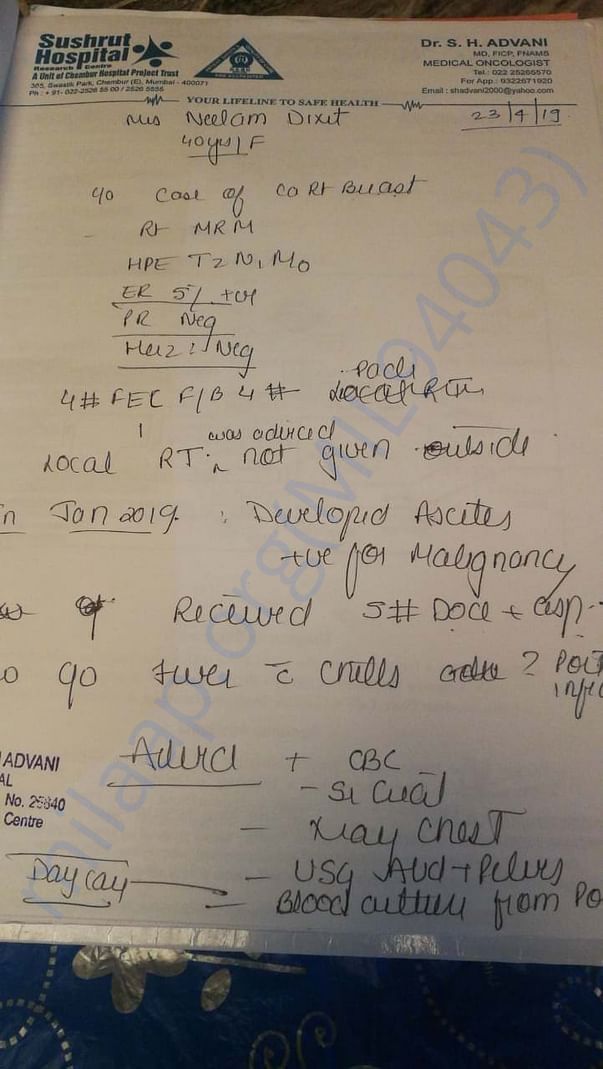 Sushrut
Hospital
Research Centre
A Unit of Chembur Hospital Project Trust
365, Swastik Park, Chembur (E), Mumbai - 400071
Ph : + 91- 022-2526 55 00 / 2526 5656
Dr. S. H. ADVANI
MD, FICP, FNAMS
MEDICAL ONCOLOGIST
Tel : 022 25265570
For App : 9322671920
Email : shadvani2000@yahoo.com
YOUR LIFELINE TO SAFE HEALTH
Mrs Neelam Dixit
23/4/19
40yrs/F
Case of Ca Rt Breast
Rt MRM
HPE T2 N1 M0
ER 5% +ve
PR Neg
Her2 : Neg
4# FEC F/B 4# Pacli
was adviced
Local RT not given outside
In Jan 2019 : Developed Ascites
+ve for Malignancy
Received 5# Doce + Cisp
fever c̄ chills ? Port
infec
Adviced + CBC
ADVANI
AL
No. 25840
Centre
- Xray Chest
- USG Abd + Pelvis
Daycay
- Blood culture from Po
milaap.org(MIL94043)